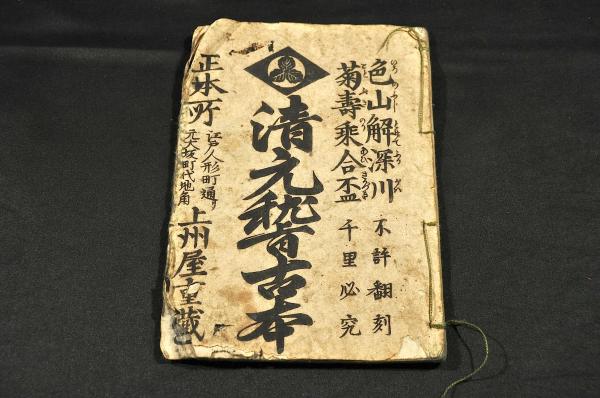 色山解深川
菊壽乘合盃
不許翻刻
千里必究
清元稽古本
正本所
江戸人形町通り
元大坂町代地角
上州屋重蔵